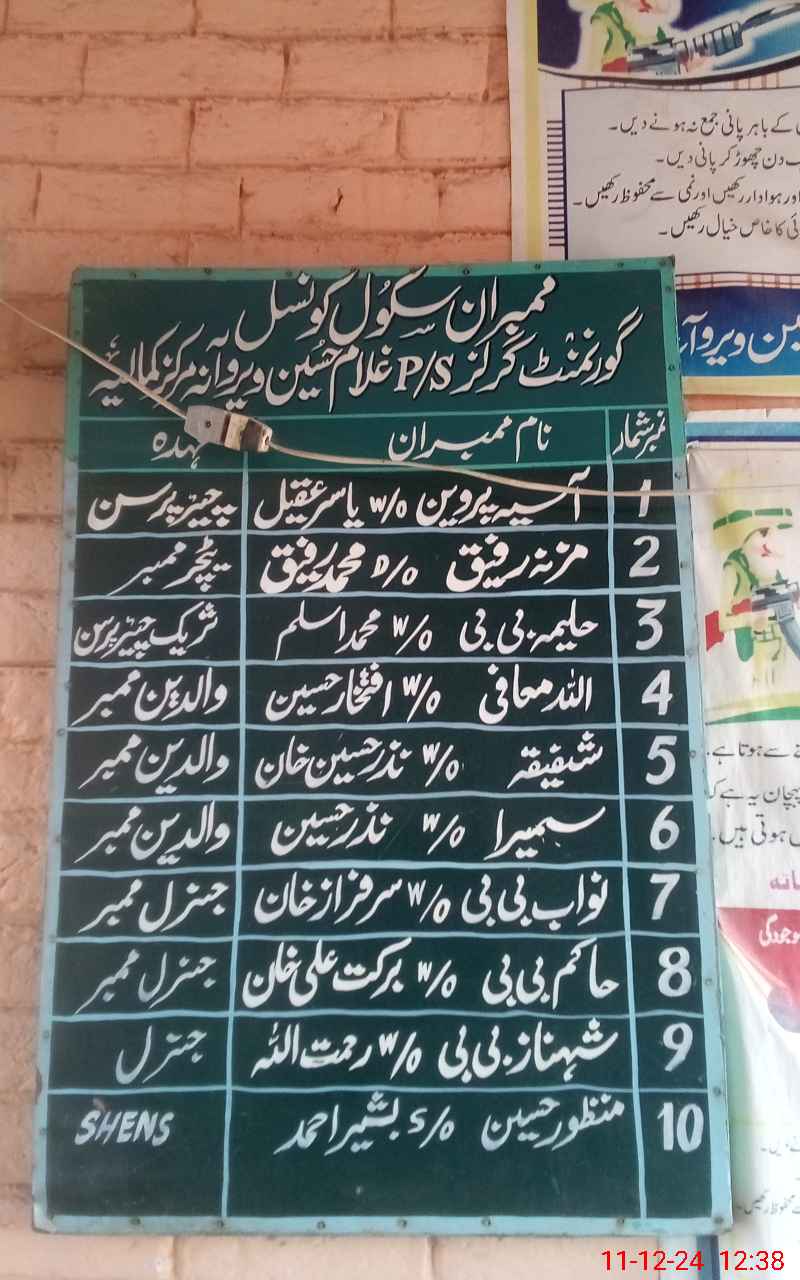 کے باہر پانی جمع نہ ہونے دیں۔
دن چھوڑ کر پانی دیں۔
اور ہوادار رکھیں اور نمی سے محفوظ رکھیں۔
کا خاص خیال رکھیں۔
ممبران سکول کونسل
گورنمنٹ گرلز P/S غلام حسین ویروآنہ مرکز کمالیہ
نمبر شمار نام ممبران ہدہ
1 آسیہ پروین W/o یاسر عقیل چیئرپرسن
2 مزنہ رفیق D/o محمد رفیق ٹیچر ممبر
3 حلیمہ بی بی W/o محمد اسلم شریک چیئرپرسن
4 اللہ معافی W/o افتخار حسین والدین ممبر
5 شفیقہ W/o نذر حسین خان والدین ممبر
6 سمیرا W/o نذر حسین والدین ممبر
7 نواب بی بی W/o سرفراز خان جنرل ممبر
8 حاکم بی بی W/o برکت علی خان جنرل ممبر
9 شہناز بی بی W/o رحمت اللہ جنرل
10 منظور حسین S/o بشیر احمد SHENS
سے ہوتا ہے۔
پہچان یہ ہے کہ
ہوتی ہیں۔
محفوظ رکھیں۔
11-12-24 12:38